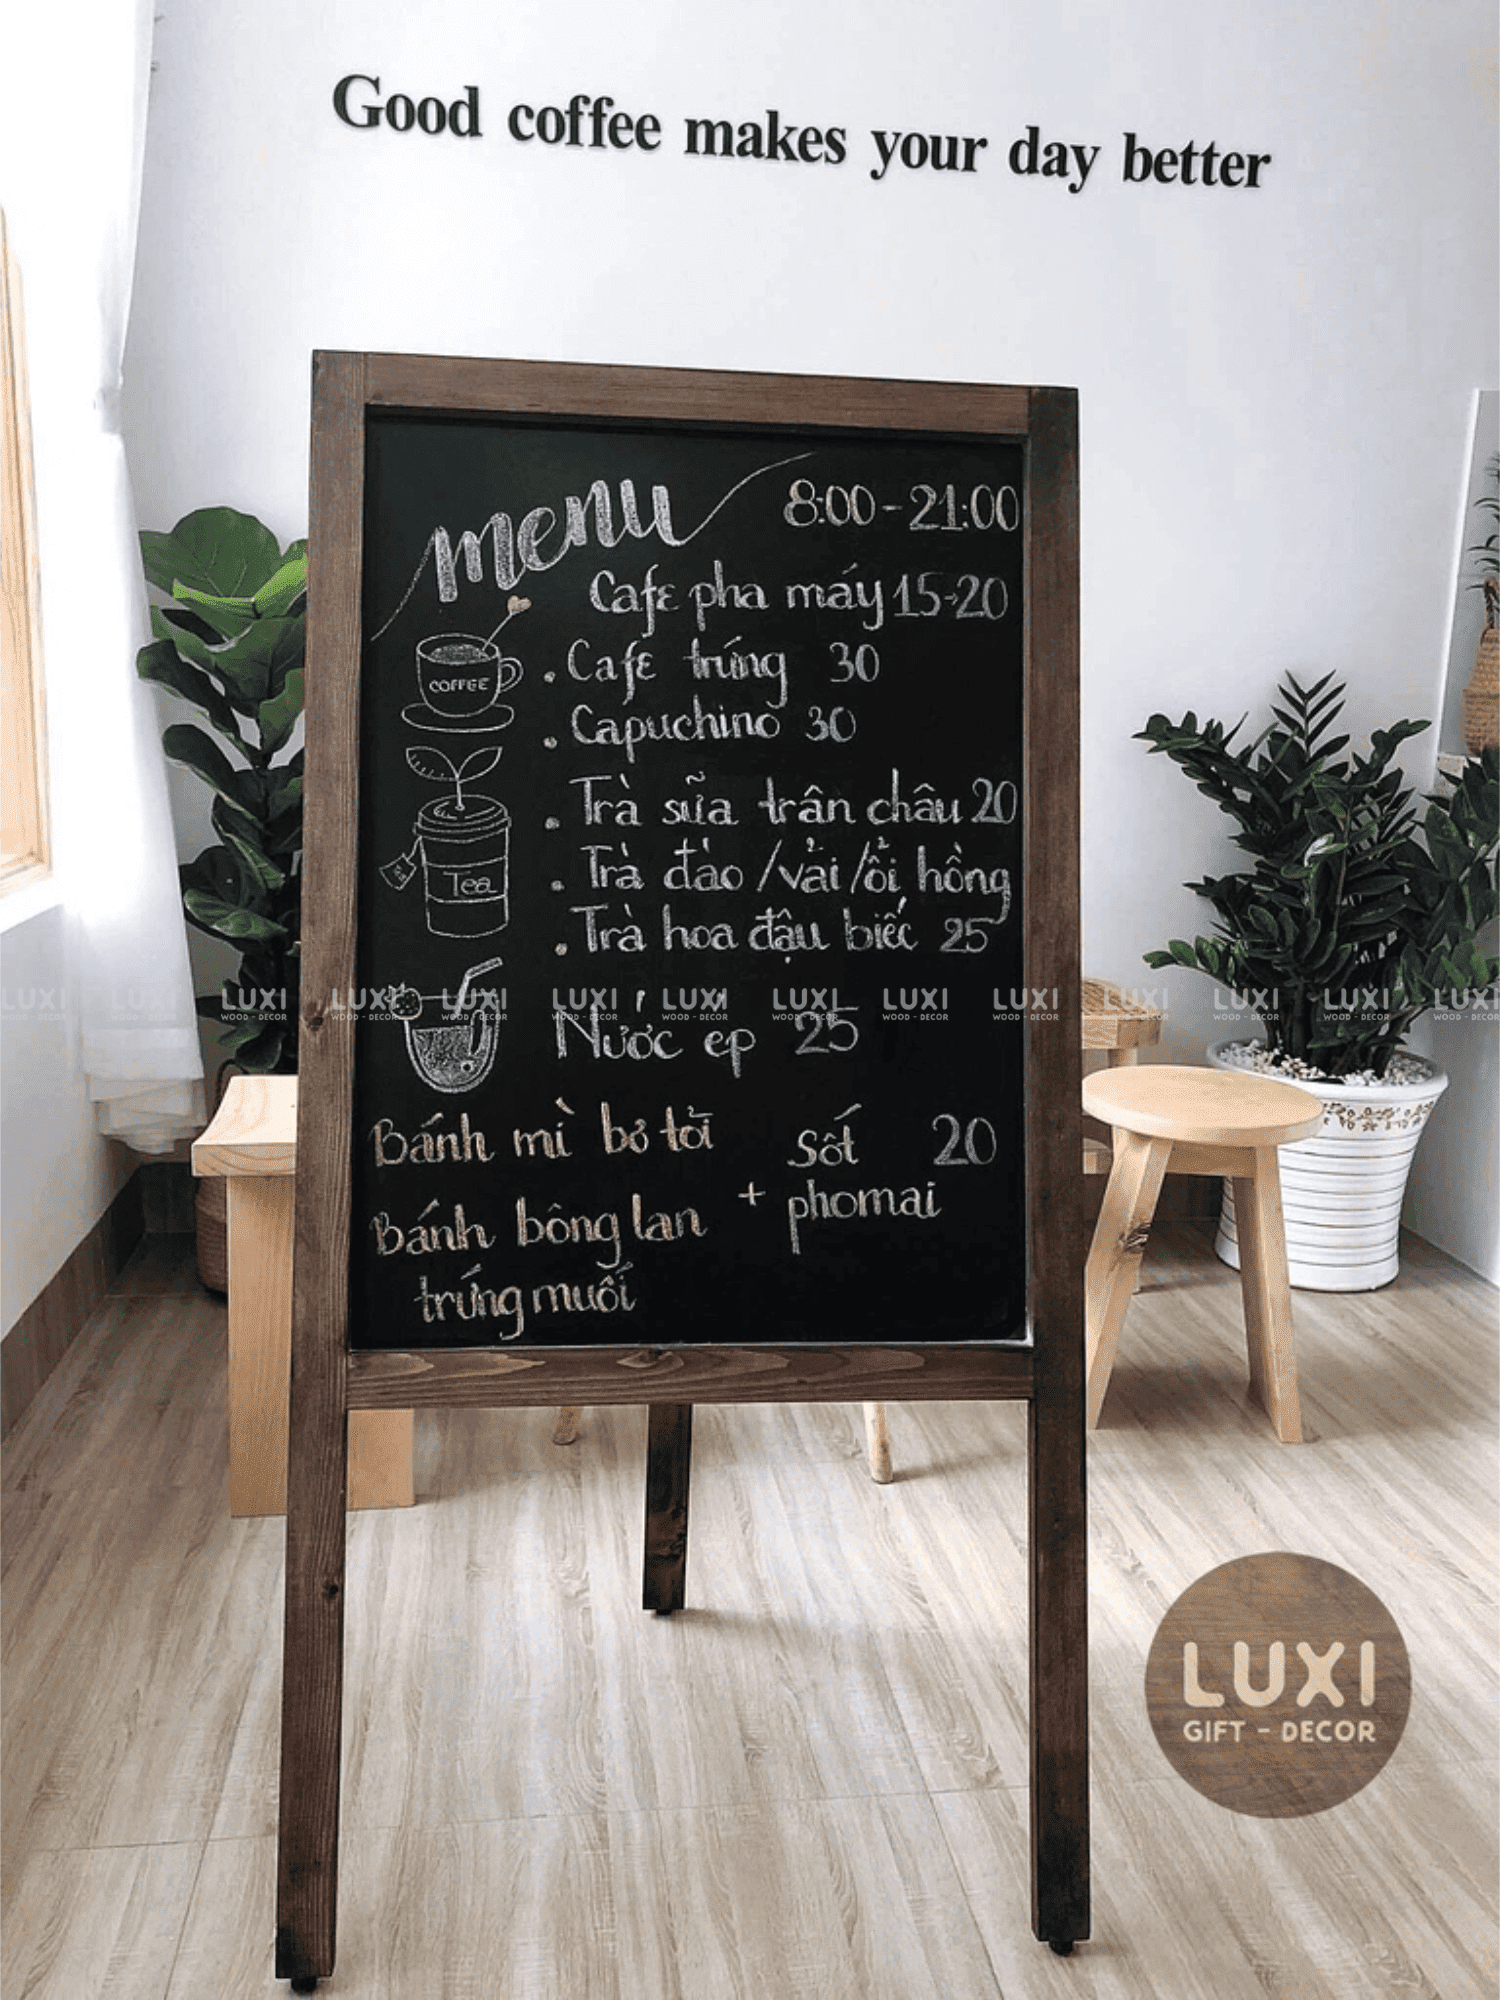 Good coffee makes your day better
menu 8:00-21:00
Cafe pha máy 15-20
COFFEE
. Cafe trứng 30
. Capuchino 30
. Trà sữa trân châu 20
Tea
. Trà đào /vải /ổi hồng
. Trà hoa đậu biếc 25
LUXI LUXI LUXI LUXI LUXI LUXI LUXI LUXI LUXI LUXI LUXI LUXI LUXI LUXI
WOOD - DECOR WOOD - DECOR WOOD - DECOR WOOD - DECOR WOOD - DECOR WOOD - DECOR WOOD - DECOR WOOD - DECOR WOOD - DECOR WOOD - DECOR WOOD - DECOR WOOD - DECOR
Nước ép 25
Bánh mì bơ tỏi
Bánh bông lan
trứng muối
+ sốt 20
phomai
LUXI
GIFT - DECOR